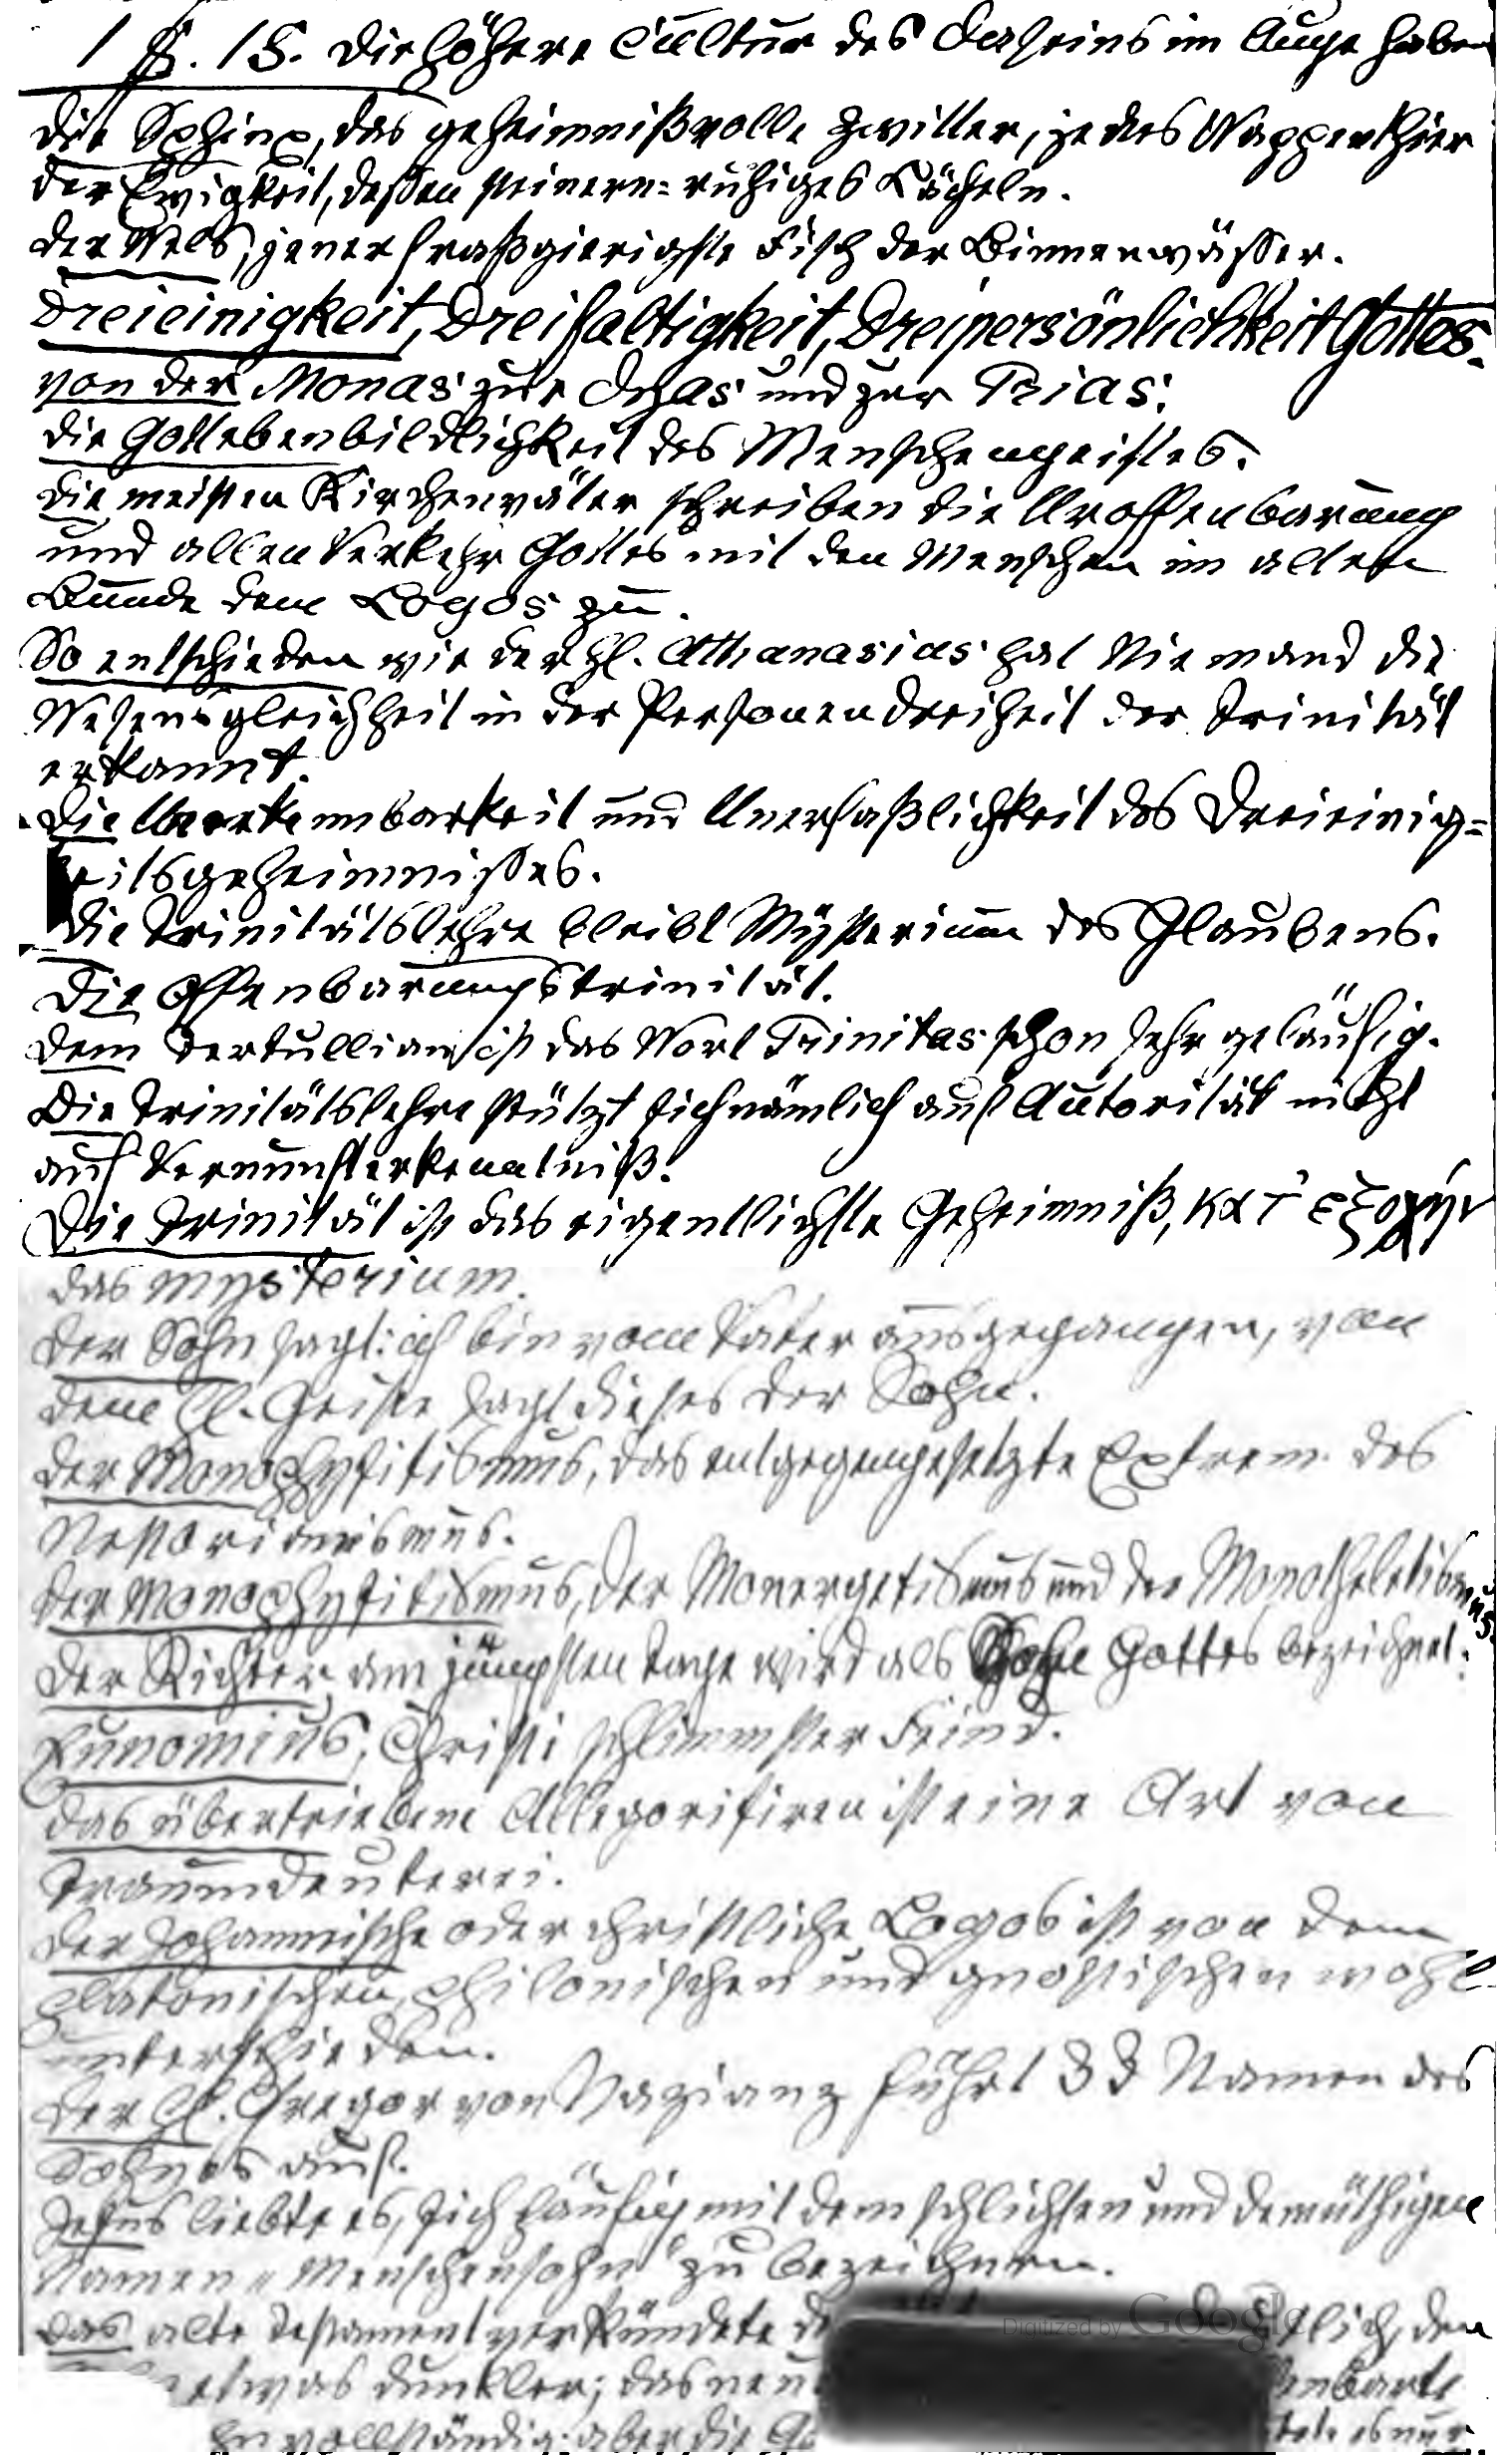 1 §. 18. Die höhere Cultur des Daseins im Auge haben
Die Sphinx, das geheimnißvolle Zwitter, jedes Wappenthier
der Ewigkeit, deßen steinern=ruhiges Lächeln.
Der Wels, jener fraßgierigste Fisch der Binnenwäßer.
Dreieinigkeit, Dreifaltigkeit, Dreipersönlichkeit Gottes.
von der Monas zur Dyas und zur Trias.
Die Gottebenbildlichkeit des Menschengeistes.
Die meisten Kirchenväter schreiben die Uroffenbarung
und allen Verkehr Gottes mit den Menschen im alten
Bunde dem Logos zu.
So entschieden wie der hl. Athanasius hat Niemand die
Wesensgleichheit in der Personendreiheit der Trinität
erkannt.
Die Unerkennbarkeit und Unerfaßlichkeit des Dreieinig=
keitsgeheimnißes.
Die Trinitätslehre bleibt Mysterium des Glaubens.
Die Offenbarungstrinität.
Dem Tertullian ist das Wort Trinitas schon sehr geläufig.
Die Trinitätslehre stützt sich nämlich auf Autorität nicht
auf Vernunfterkenntniß.
Die Trinität ist das eigentlichste Geheimniß, κατ' εξοχήν
das mysterium.
Der Sohn sagt: ich bin vom Vater ausgegangen, von
dem hl. Geiste sagt dieses der Sohn.
Der Monophysitismus, das entgegengesetzte Extrem des
Nestorianismus.
Der Monophysitismus, der Monergetismus und der Monotheletismus.
Der Richter am jüngsten Tage wird als Sohn Gottes bezeichnet.
Eunomius, Christi schlimmster Feind.
Das übertriebene Allegorisiren ist eine Art von
Traumdeuterei.
Der Johannische oder christliche Logos ist von dem
platonischen, philonischen und gnostischen wohl
unterschieden.
Der hl. Gregor von Nazianz führt 33 Namen des
Sohnes auf.
Jesus liebte es, sich häufig mit dem schlichten und demüthigen
Namen „Menschensohn" zu bezeichnen.
Das alte Testament verkündete den
etwas dunkler; das neue
ihn vollständig; aber die
Digitized by Google